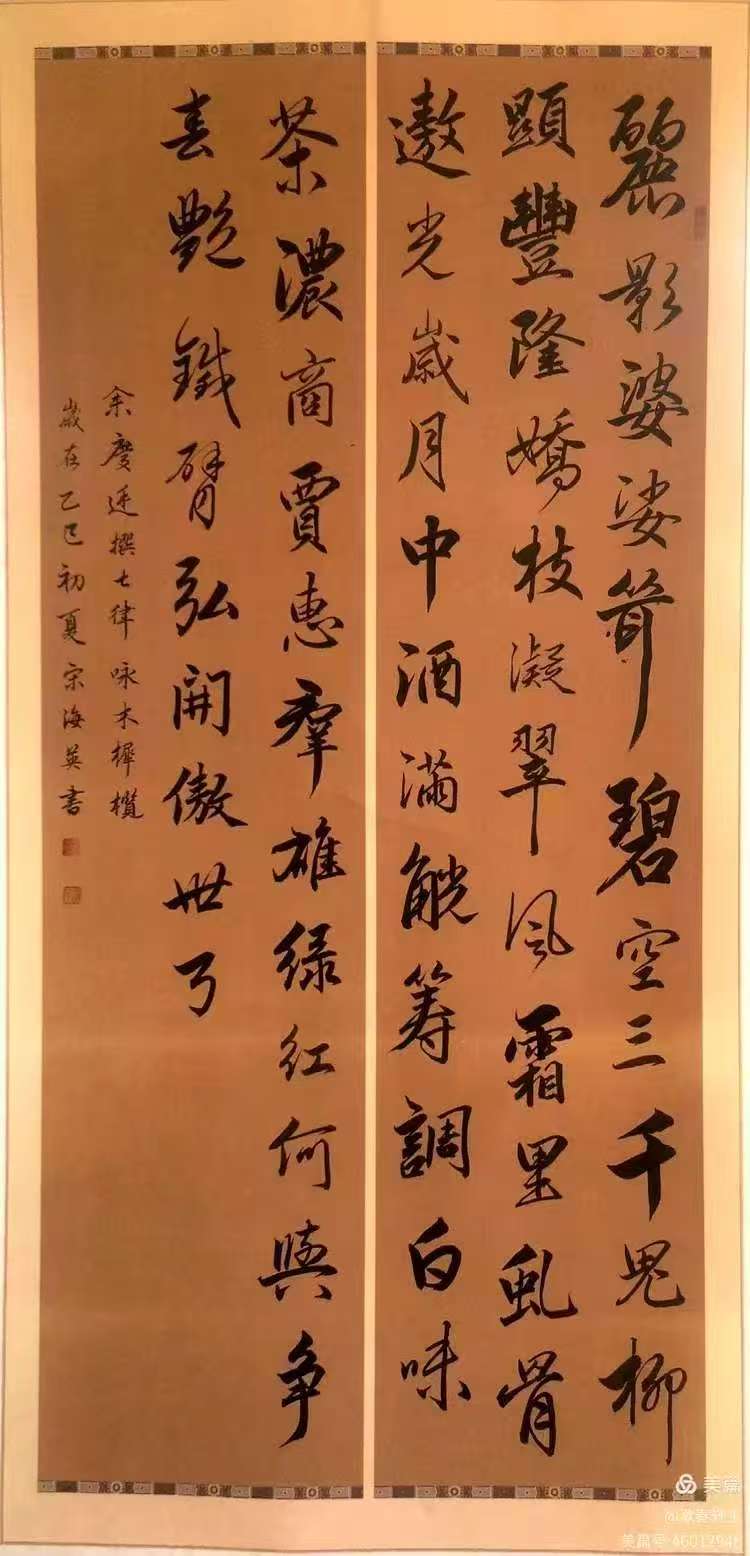 麗影婆娑箭碧空三千鬼柳
顯豐隆嬌枝凝翠風霜里虬骨
遨光歲月中酒滿觥籌調白味
茶濃商賈惠羣雄綠紅何與爭
春艷鐵臂弘開傲世弓
余慶廷撰七律咏木樨欖
歲在乙巳初夏宋海英書
美篇
美篇号